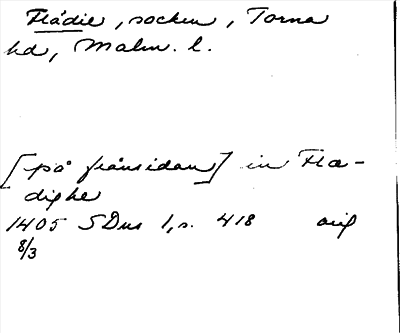 Flädie, socken, Torna
hd, Malm. l.
[på frånsidan] in Fla-
dighe
1405 SDns 1, s. 418 orig
8/3